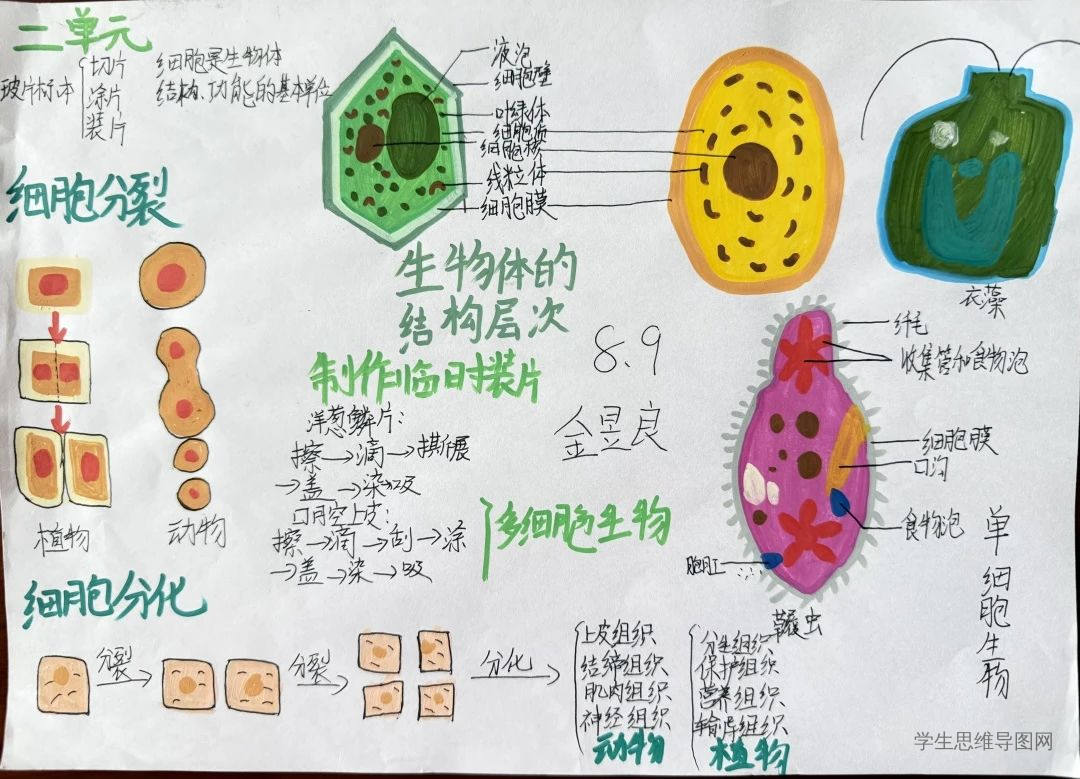 二单元
玻片标本
切片
涂片
装片
细胞是生物体
结构、功能的基本单位
液泡
细胞壁
叶绿体
细胞质
细胞核
线粒体
细胞膜
衣藻
细胞分裂
植物
动物
生物体的
结构层次
制作临时装片
8.9
金昱良
洋葱鳞片:
擦→滴→撕展
→盖→染→吸
口腔上皮:
擦→滴→刮→涂
→盖→染→吸
多细胞生物
纤毛
收集管和食物泡
细胞膜
口沟
食物泡
胞肛
草履虫
单细胞生物
细胞分化
分裂
分裂
分化
上皮组织
结缔组织
肌肉组织
神经组织
动物
分生组织
保护组织
营养组织
输导组织
植物
学生思维导图网